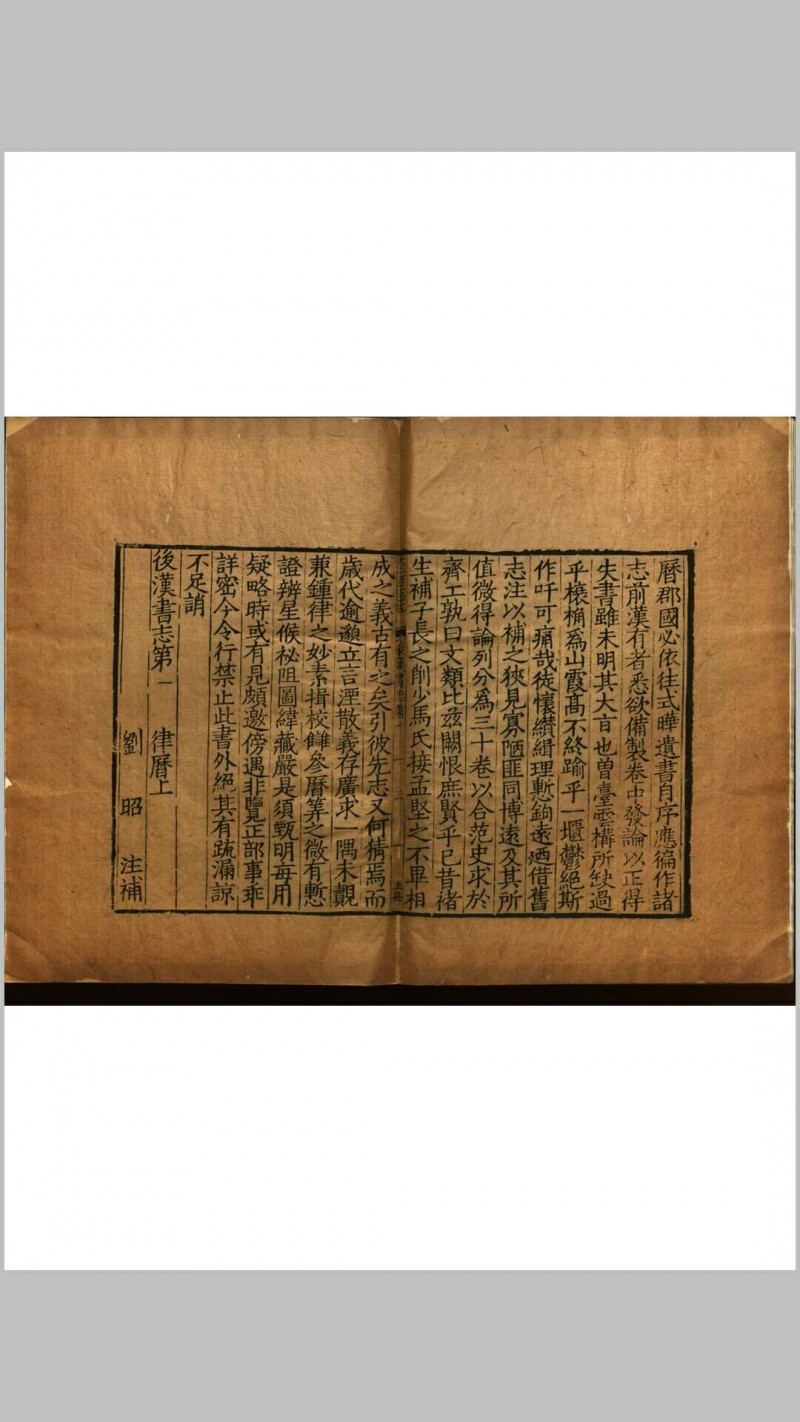 曆郡國必依往式曄遺書自序應徧作諸
志前漢有者悉欲備製卷中發論以正得
失書雖未明其大㫖也曾臺雲構所缺過
乎榱桷爲山霞髙不終踰乎一壥鬱絕斯
作吁可痛哉徒懷纘緝理慙鉤遠廼借舊
志注以補之狹見寡陋匪同博遠及其所
值微得論列分爲三十卷以合范史求於
齊工孰曰文類比兹闕恨庶賢乎已昔褚
生補子長之削少馬氏接孟堅之不畢相
成之義古有之矣引彼先志又何猜焉而
歲代逾邈立言湮散義存廣求一隅未覿
兼鍾律之妙素揖校讎參曆筭之微有慙
證辨星候祕阻圖緯藏嚴是須甄明每用
疑略時或有見頗邀傍遇非覽正部事乖
詳密今令行禁止此書外絕其有疏漏諒
不足誚
後漢書志第一 律曆上
劉昭 注補